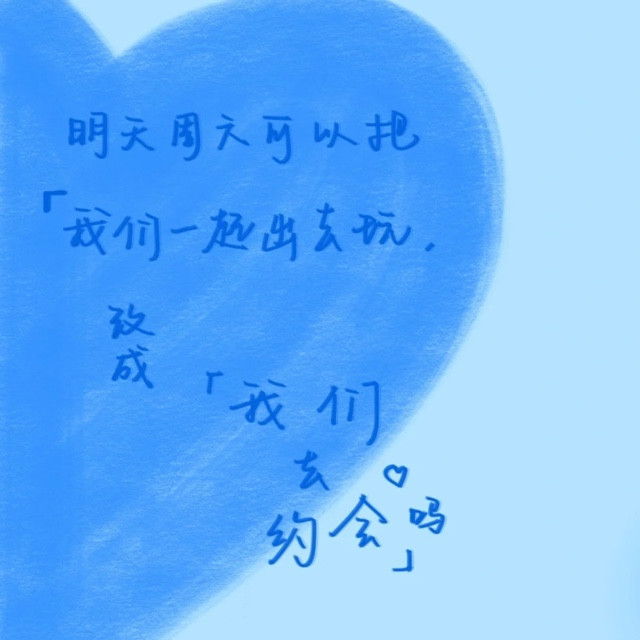 明天周六可以把
「我们一起出去玩」
改
成
「我们
去♡
约会吗
」